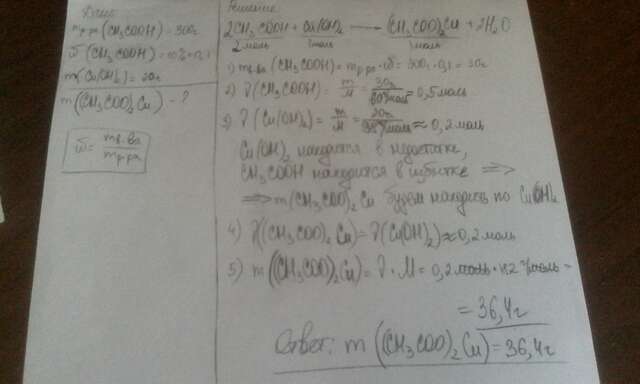 Дано:
mр.ра (CH₃COOH) = 300г
ω (CH₃COOH) = 10% = 0,1
m(Cu(OH)₂) = 20г
m((CH₃COO)₂Cu) - ?
ω = mв.ва / mр.ра
Решение
2CH₃COOH + Cu(OH)₂ → (CH₃COO)₂Cu + 2H₂O
2 моль 1 моль 1 моль
1) mв.ва (CH₃COOH) = mр.ра · ω = 300г · 0,1 = 30г
2) ν (CH₃COOH) = m/M = 30г / 60г/моль = 0,5 моль
3) ν (Cu(OH)₂) = m/M = 20г / 98г/моль ≈ 0,2 моль
Cu(OH)₂ находится в недостатке,
CH₃COOH находится в избытке ⟹
⟹ m(CH₃COO)₂Cu будем находить по Cu(OH)₂
4) ν((CH₃COO)₂Cu) = ν(Cu(OH)₂) ≈ 0,2 моль
5) m((CH₃COO)₂Cu) = ν · M = 0,2 моль · 182 г/моль =
= 36,4г
Ответ: m((CH₃COO)₂Cu) = 36,4г